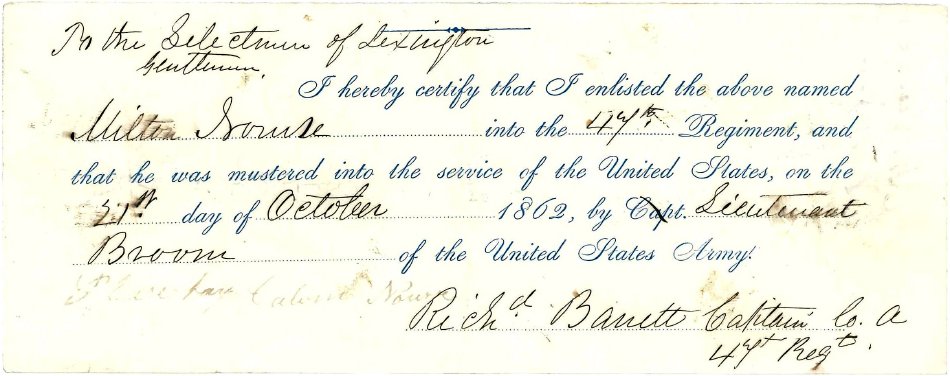 To the Selectmen of Lexington
Gentlemen.
I hereby certify that I enlisted the above named
Milton Nourse into the 47th. Regiment, and
that he was mustered into the service of the United States, on the
31st day of October 1862, by Capt. Lieutenant
Broom of the United States Army.
Richd Barrett Captain Co. A
47th Regt.